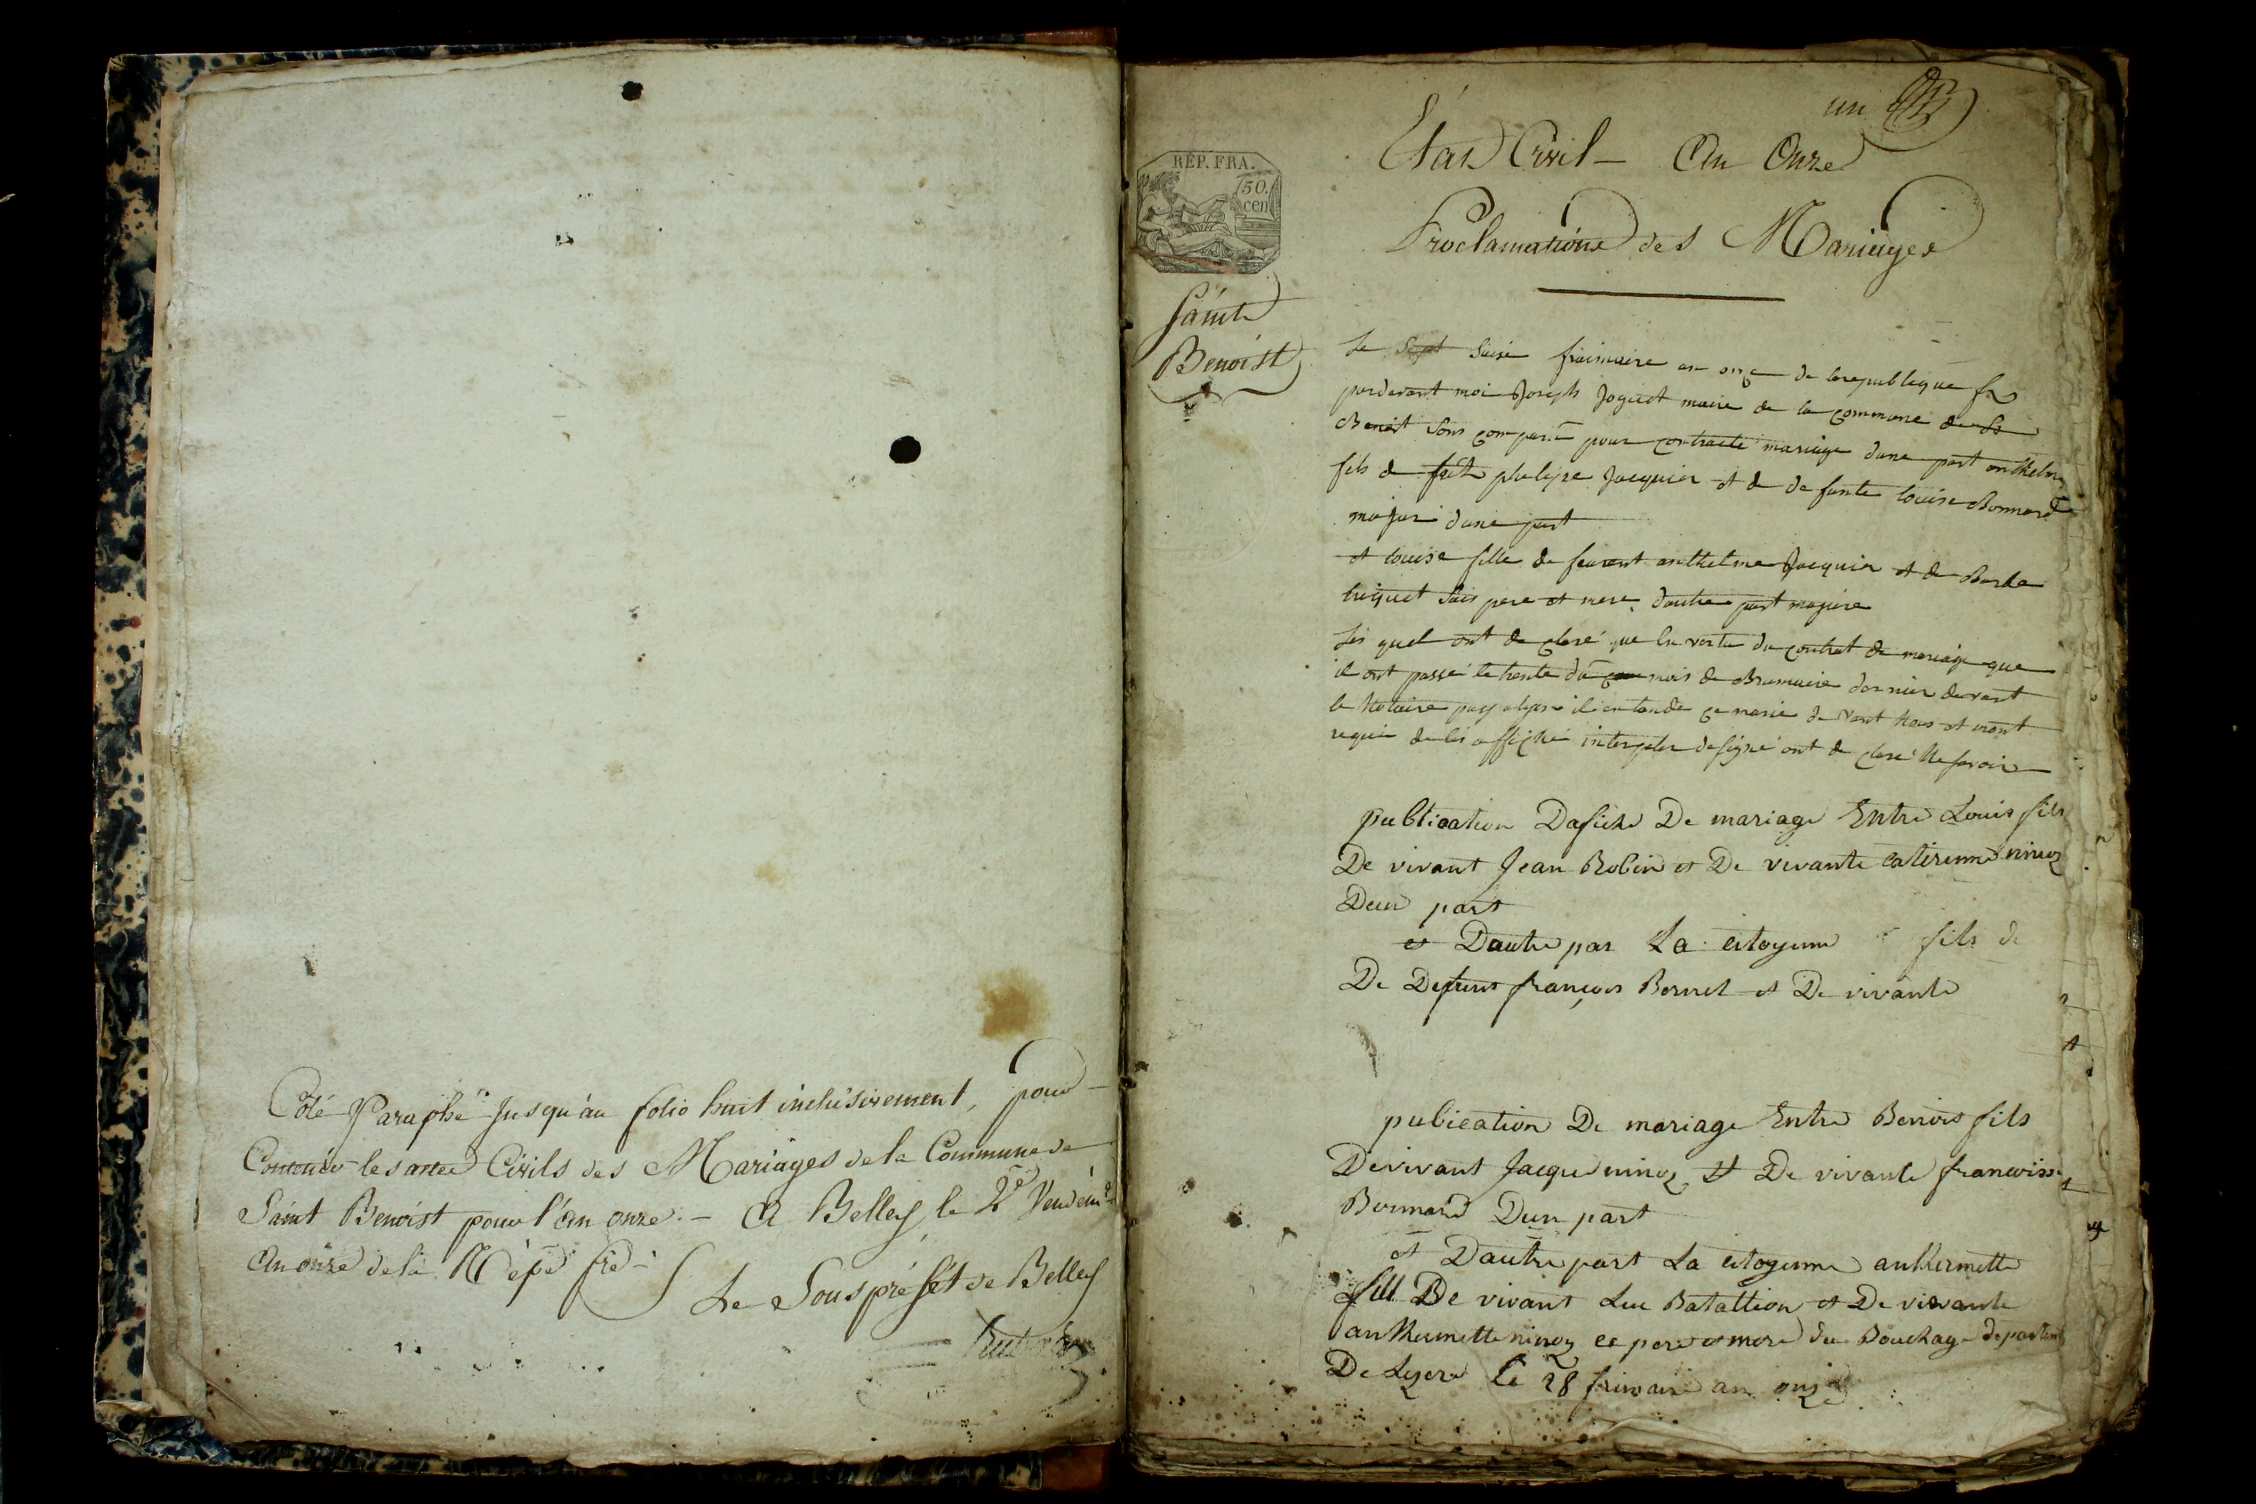 Coté Paraphé Jusqu'au folio huit inclusivement, pour
Contenir les actes Civils des Mariages de la Commune de
Saint Benoist pour l'an onze. - A Belley, le 2e Vendémre
An onze de la Répe fre
Le Souspréfet de Belley
un
Etat Civil - An Onze
Proclamations des Mariages
RÉP. FRA.
50.
cen
Saint
Benoist
Le sept saise frimaire an onze de la republique fr
pardevant moi Joseph Joguet maire de la commune de St
Benoit sons comparu pour contracté mariage dune part anthelme
fils de philipe Jacquier et de defunte louise Bonnard
majur dune part
et louise fille de anthelme Jacquier et de Barbe
suis pere et mere dautre part majure
Les quel ont de claré que en vertu du contrat de mariage que
il ont passé le trente du mois de Brumaire dernier devant
le Notaire il entende ce marié de vant nous et mont
requi de les affiché interpeler de signé ont de claré Ne savoir
publication Dafiche De mariage Entre Louis fils
De vivant Jean Robin et De vivante caterinne ninoz
Deun part
et Dautre par La citoyenne fils de
De Defunt françois Bornet et De vivante
publication De mariage Entre Benois fils
De vivant Jacque ninoz et De vivante francoisse
Bornard Dun part
et Dautre part La citoyenne anthermette
fill De vivant Luc Batattion et De vivante
anthermette ninoz ce pere et mere du Bouchage departem
De Lysere Le 28 frimaire an onze